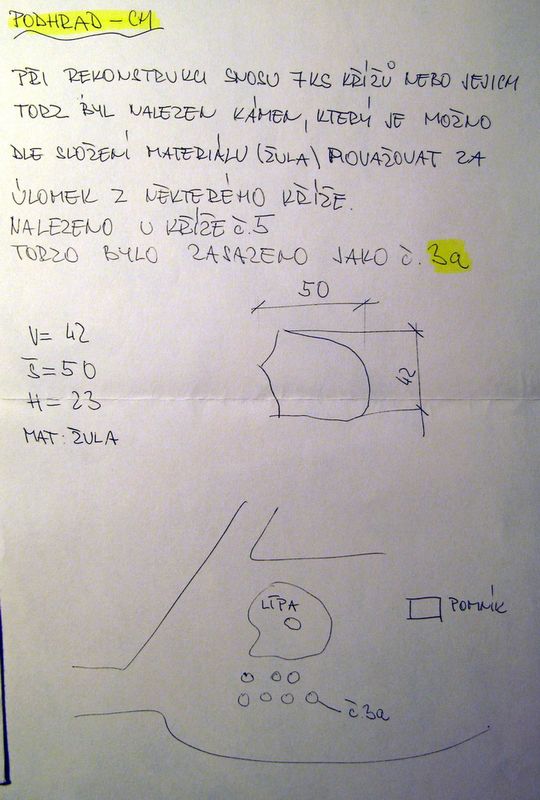 PODHRAD - CH
PŘI REKONSTRUKCI SNOSU 7KS KŘÍŽŮ NEBO JEJICH
TORZ BYL NALEZEN KÁMEN, KTERÝ JE MOŽNO
DLE SLOŽENÍ MATERIÁLU (ŽULA) POVAŽOVAT ZA
ÚLOMEK Z NĚKTERÉHO KŘÍŽE.
NALEZENO U KŘÍŽE Č.5
TORZO BYLO ZASAZENO JAKO Č. 3a
50
V = 42
Š = 50
H = 23
MAT: ŽULA
42
LÍPA
POMNÍK
č.3a